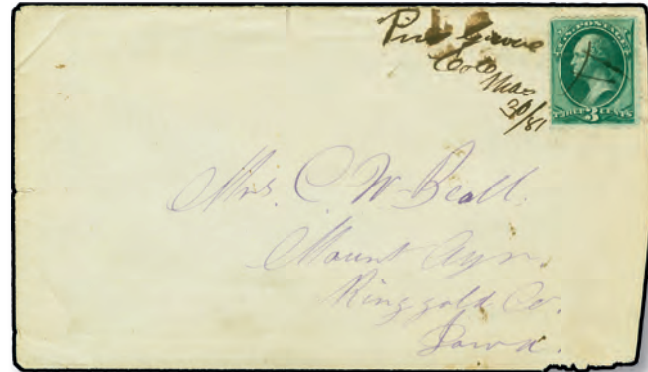 Pine Grove
Colo
Mar
30/81
U.S. POSTAGE
THREE 3 CENTS
Mrs. C. W. Beall.
Mount Ayr.
Ringgold Co.
Iowa.